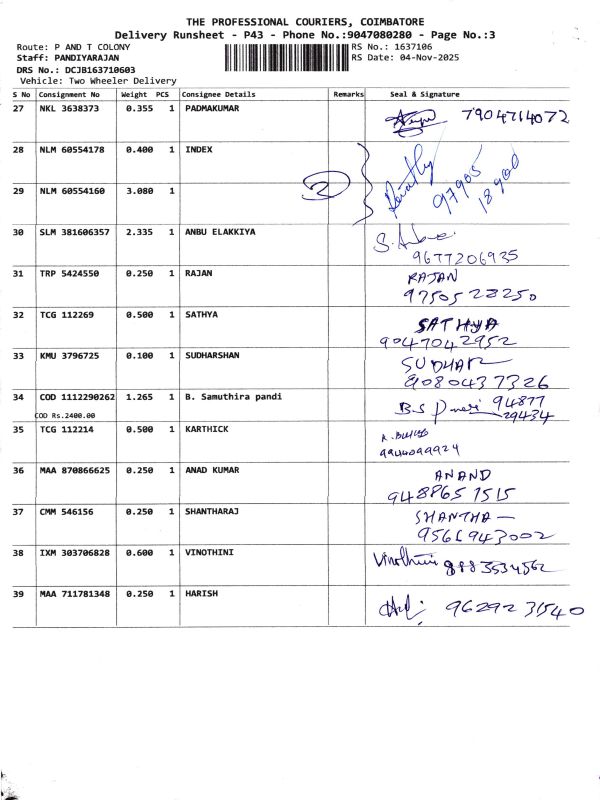 THE PROFESSIONAL COURIERS, COIMBATORE
Delivery Runsheet - P43 - Phone No.:9047080280 - Page No.:3
Route: P AND T COLONY
RS No.: 1637106
Staff: PANDIYARAJAN
RS Date: 04-Nov-2025
DRS No.: DCJB163710603
Vehicle: Two Wheeler Delivery
S No Consignment No Weight PCS Consignee Details Remarks Seal & Signature
27 NKL 3638373 0.355 1 PADMAKUMAR 7904714072
28 NLM 60554178 0.400 1 INDEX
2 97905 18900
29 NLM 60554160 3.080 1
30 SLM 381606357 2.335 1 ANBU ELAKKIYA
9677206935
31 TRP 5424550 0.250 1 RAJAN RAJAN
9750528250
32 TCG 112269 0.500 1 SATHYA SATHYA
9047042952
33 KMU 3796725 0.100 1 SUDHARSHAN SUDHAR
9080437326
34 COD 1112290262 1.265 1 B. Samuthira pandi B.S 94877
COD Rs.2400.00 29434
35 TCG 112214 0.500 1 KARTHICK
9944099924
36 MAA 870866625 0.250 1 ANAD KUMAR ANAND
9488651515
37 CMM 546156 0.250 1 SHANTHARAJ SHANTHA
9566943002
38 IXM 303706828 0.600 1 VINOTHINI Vinothini 8883534562
39 MAA 711781348 0.250 1 HARISH 9629231540